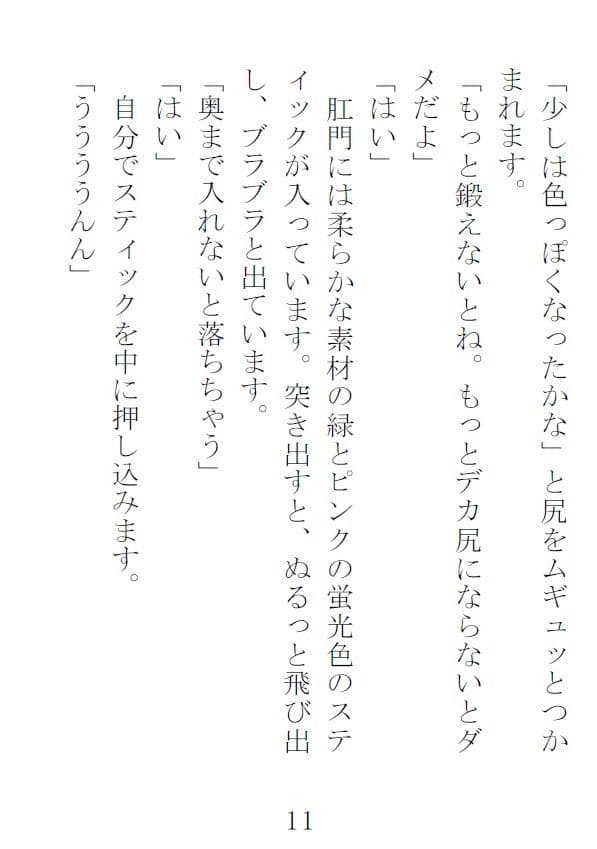 「少しは色っぽくなったかな」と尻をムギュッとつか
まれます。
「もっと鍛えないとね。もっとデカ尻にならないとダ
メだよ」
「はい」
　肛門には柔らかな素材の緑とピンクの蛍光色のステ
ィックが入っています。突き出すと、ぬるっと飛び出
し、ブラブラと出ています。
「奥まで入れないと落ちちゃう」
「はい」
　自分でスティックを中に押し込みます。
「うううんん」
11